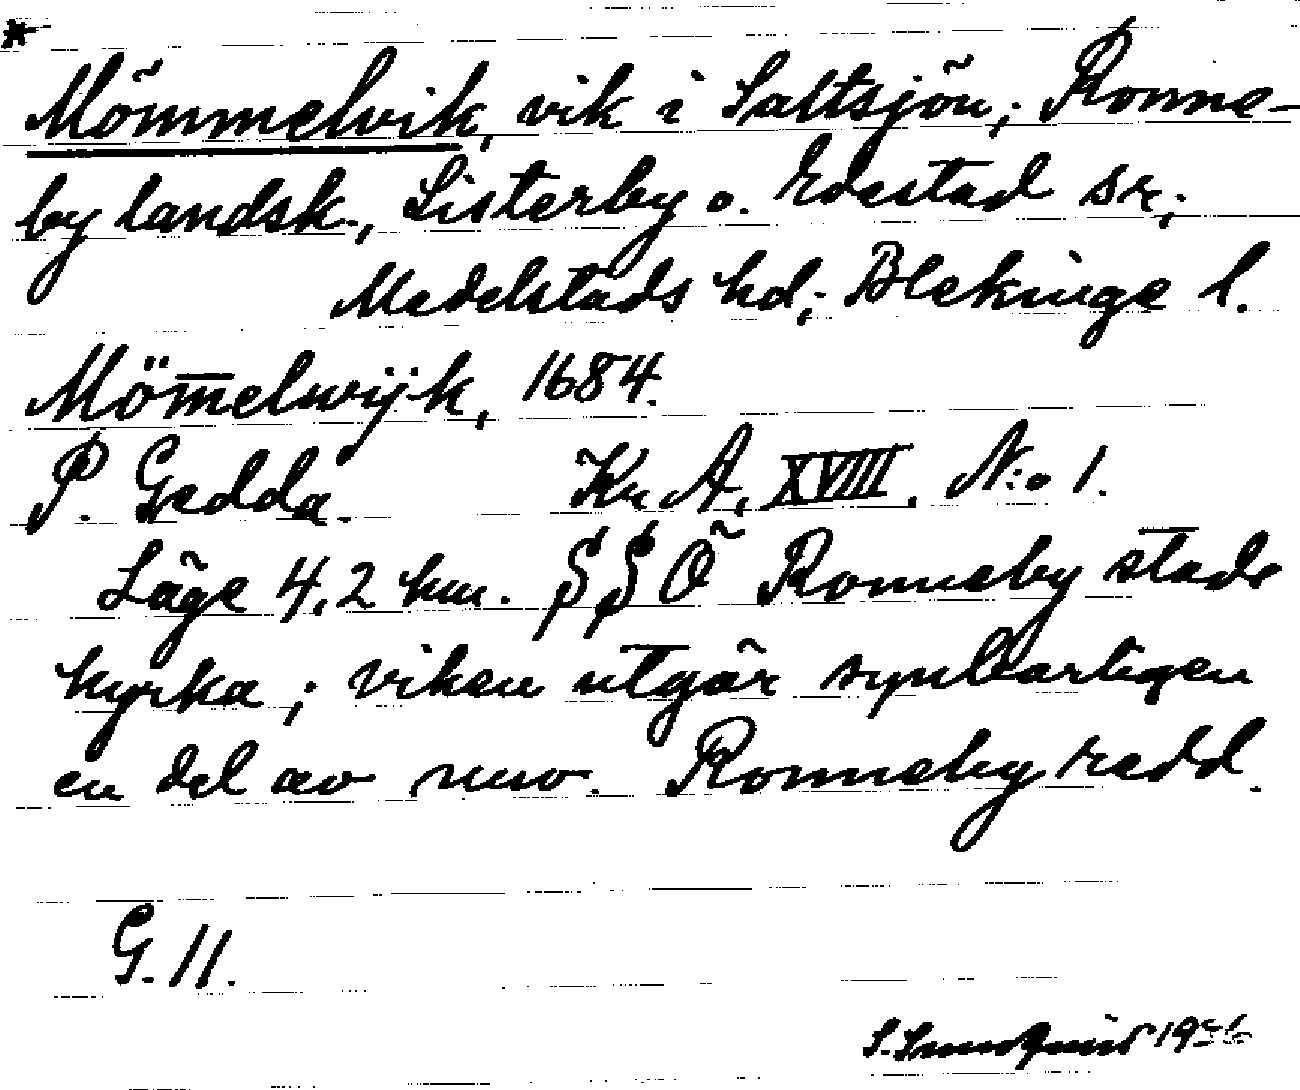 *
Mömmelvik, vik i Saltsjön; Ronne-
by landsk., Listerby o. Edestad sr;
Medelstads hd; Blekinge l.
Möm̄elwijk, 1684.
P. Gedda. Kr A, XVIII. N:o 1.
Läge 4,2 km. SSÖ Ronneby stads
kyrka; viken utgör synbarligen
en del av nuv. Ronneby redd.
G. 11.